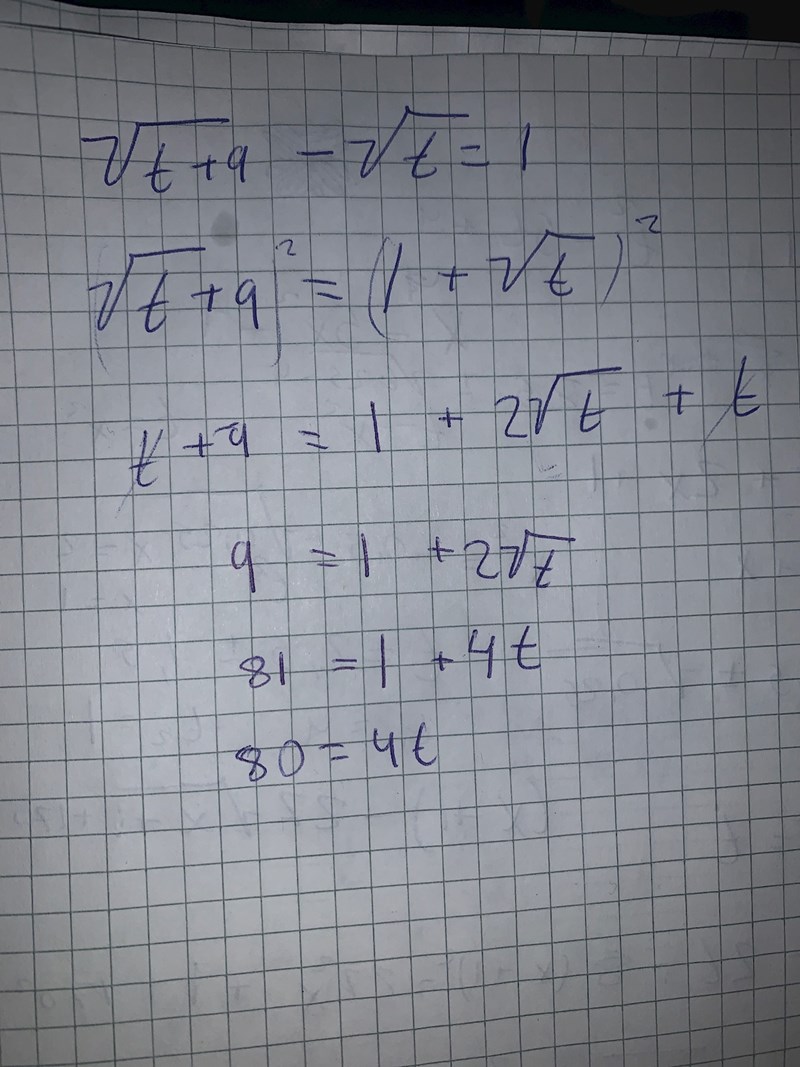 √t+9 − √t = 1
(√t+9)² = (1 + √t)²
t + 9 = 1 + 2√t + t
9 = 1 + 2√t
81 = 1 + 4t
80 = 4t